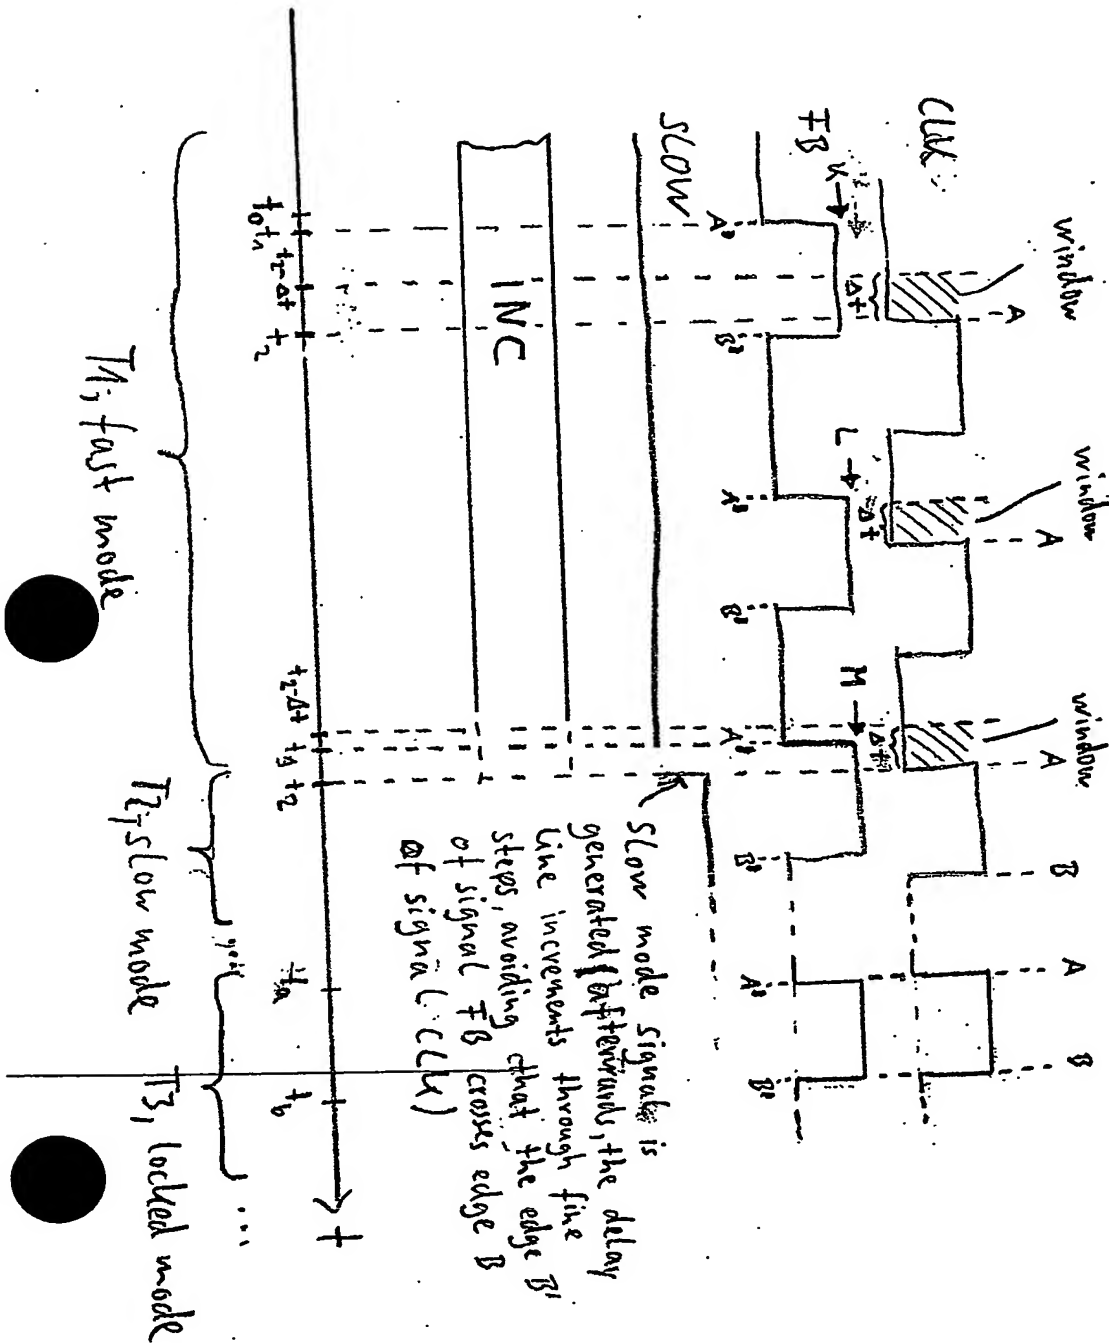 window window window
A A A B A B
CLK:
Δt Δt Δt
FB K L M
A' B' A' B' A' B' A' B'
SLOW
Slow mode signal is
generated (afterwards, the delay
line increments through fine
steps, avoiding that the edge B'
of signal FB crosses edge B
of signal CLK)
INC
t
t₀ t₁ t₂-Δt t₂ t₂-Δt t₃ t₂ ta tb
T1, fast mode T2, slow mode T3, locked mode ...